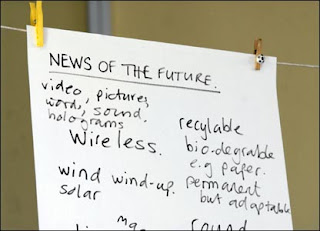 NEWS OF THE FUTURE.
video, pictures,
word, sound.
holograms
Wireless.
wind wind-up.
solar
recylable
bio-degrable
e.g paper.
permanent
but adaptable